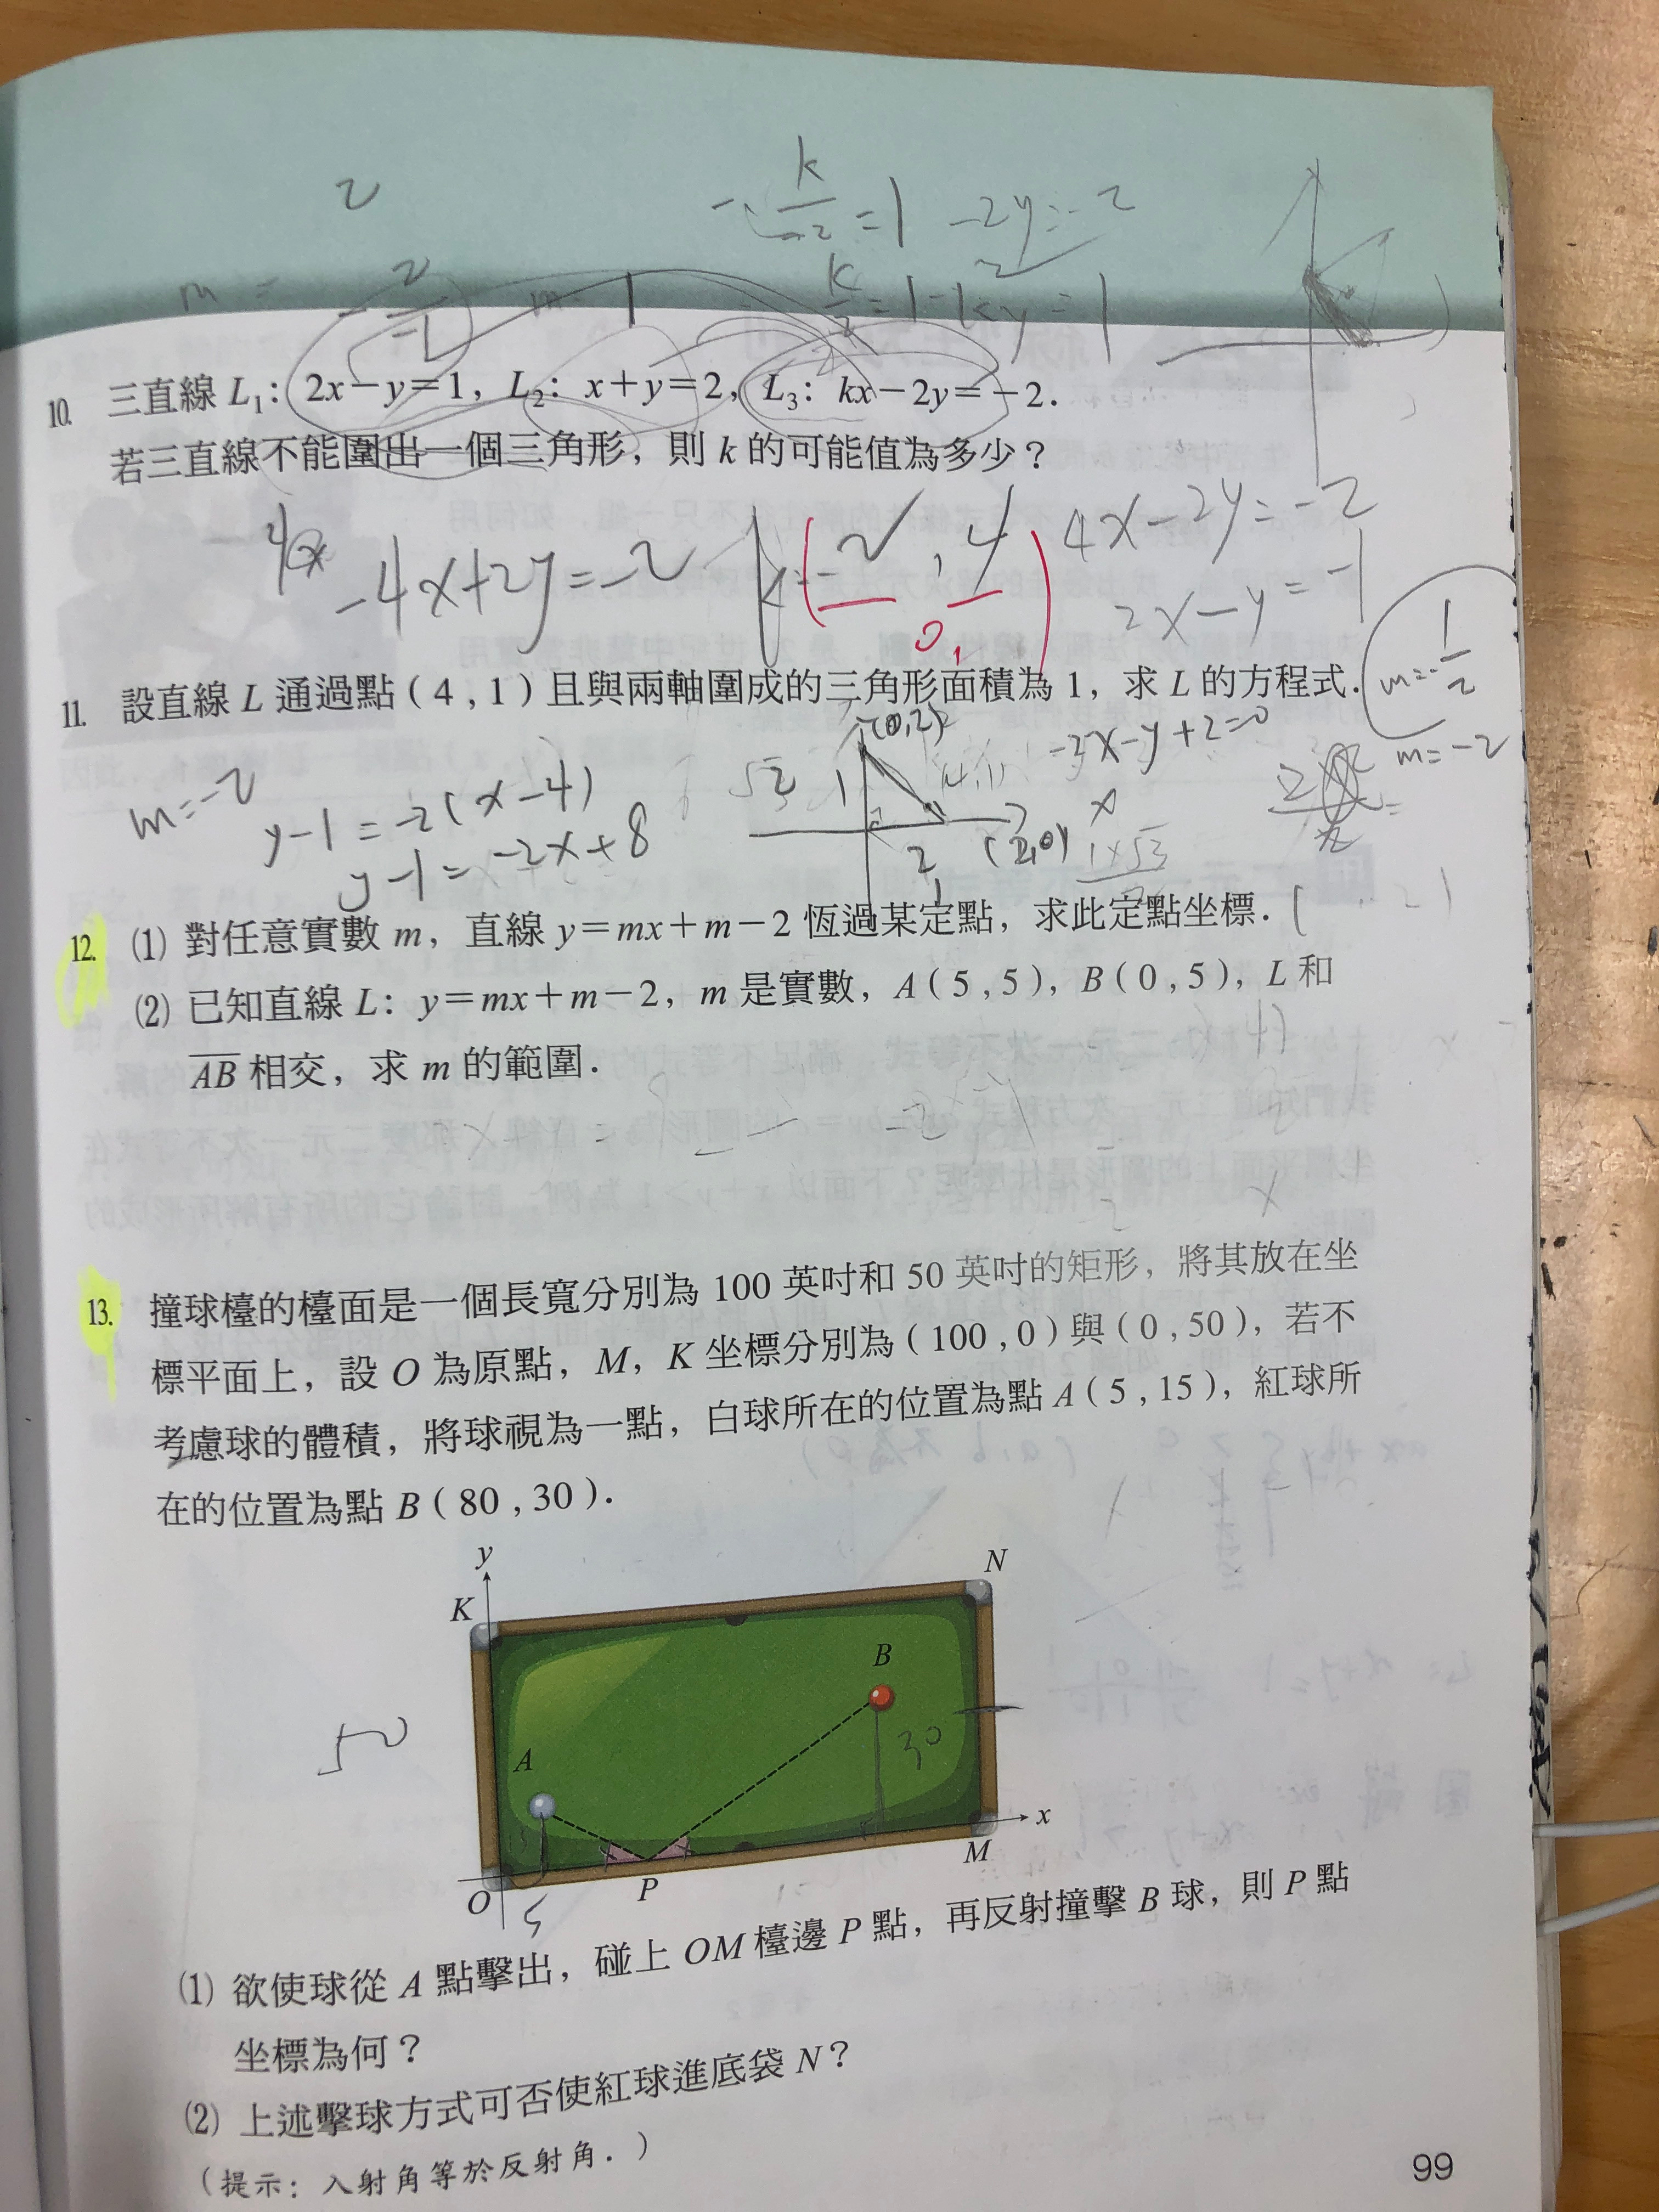 2
-k/-2=1 -2y=-2
m= -2/-1 m -1 k/2=1 -ky=1
10. 三直線 L₁：2x－y＝1，L₂：x＋y＝2，L₃：kx－2y＝－2．
若三直線不能圍出一個三角形，則 k 的可能值為多少？
-4x+2y=-2 k=(-2,4) 4x-2y=-2
0,1 2x-y=-1
11. 設直線 L 通過點（4，1）且與兩軸圍成的三角形面積為 1，求 L 的方程式．
m=-1/2
(0,2) -2x-y+2=0 m=-2
m=-2 y-1=-2(x-4)
y-1=-2x+8 2 (2,0)
12. ⑴ 對任意實數 m，直線 y＝mx＋m－2 恆過某定點，求此定點坐標．
⑵ 已知直線 L：y＝mx＋m－2，m 是實數，A（5，5），B（0，5），L 和
AB 相交，求 m 的範圍．
13. 撞球檯的檯面是一個長寬分別為 100 英吋和 50 英吋的矩形，將其放在坐
標平面上，設 O 為原點，M，K 坐標分別為（100，0）與（0，50），若不
考慮球的體積，將球視為一點，白球所在的位置為點 A（5，15），紅球所
在的位置為點 B（80，30）．
y
K
N
B
50
30
A
15
x
M
O
5
P
⑴ 欲使球從 A 點擊出，碰上 OM 檯邊 P 點，再反射撞擊 B 球，則 P 點
坐標為何？
⑵ 上述擊球方式可否使紅球進底袋 N？
（提示：入射角等於反射角．）
99